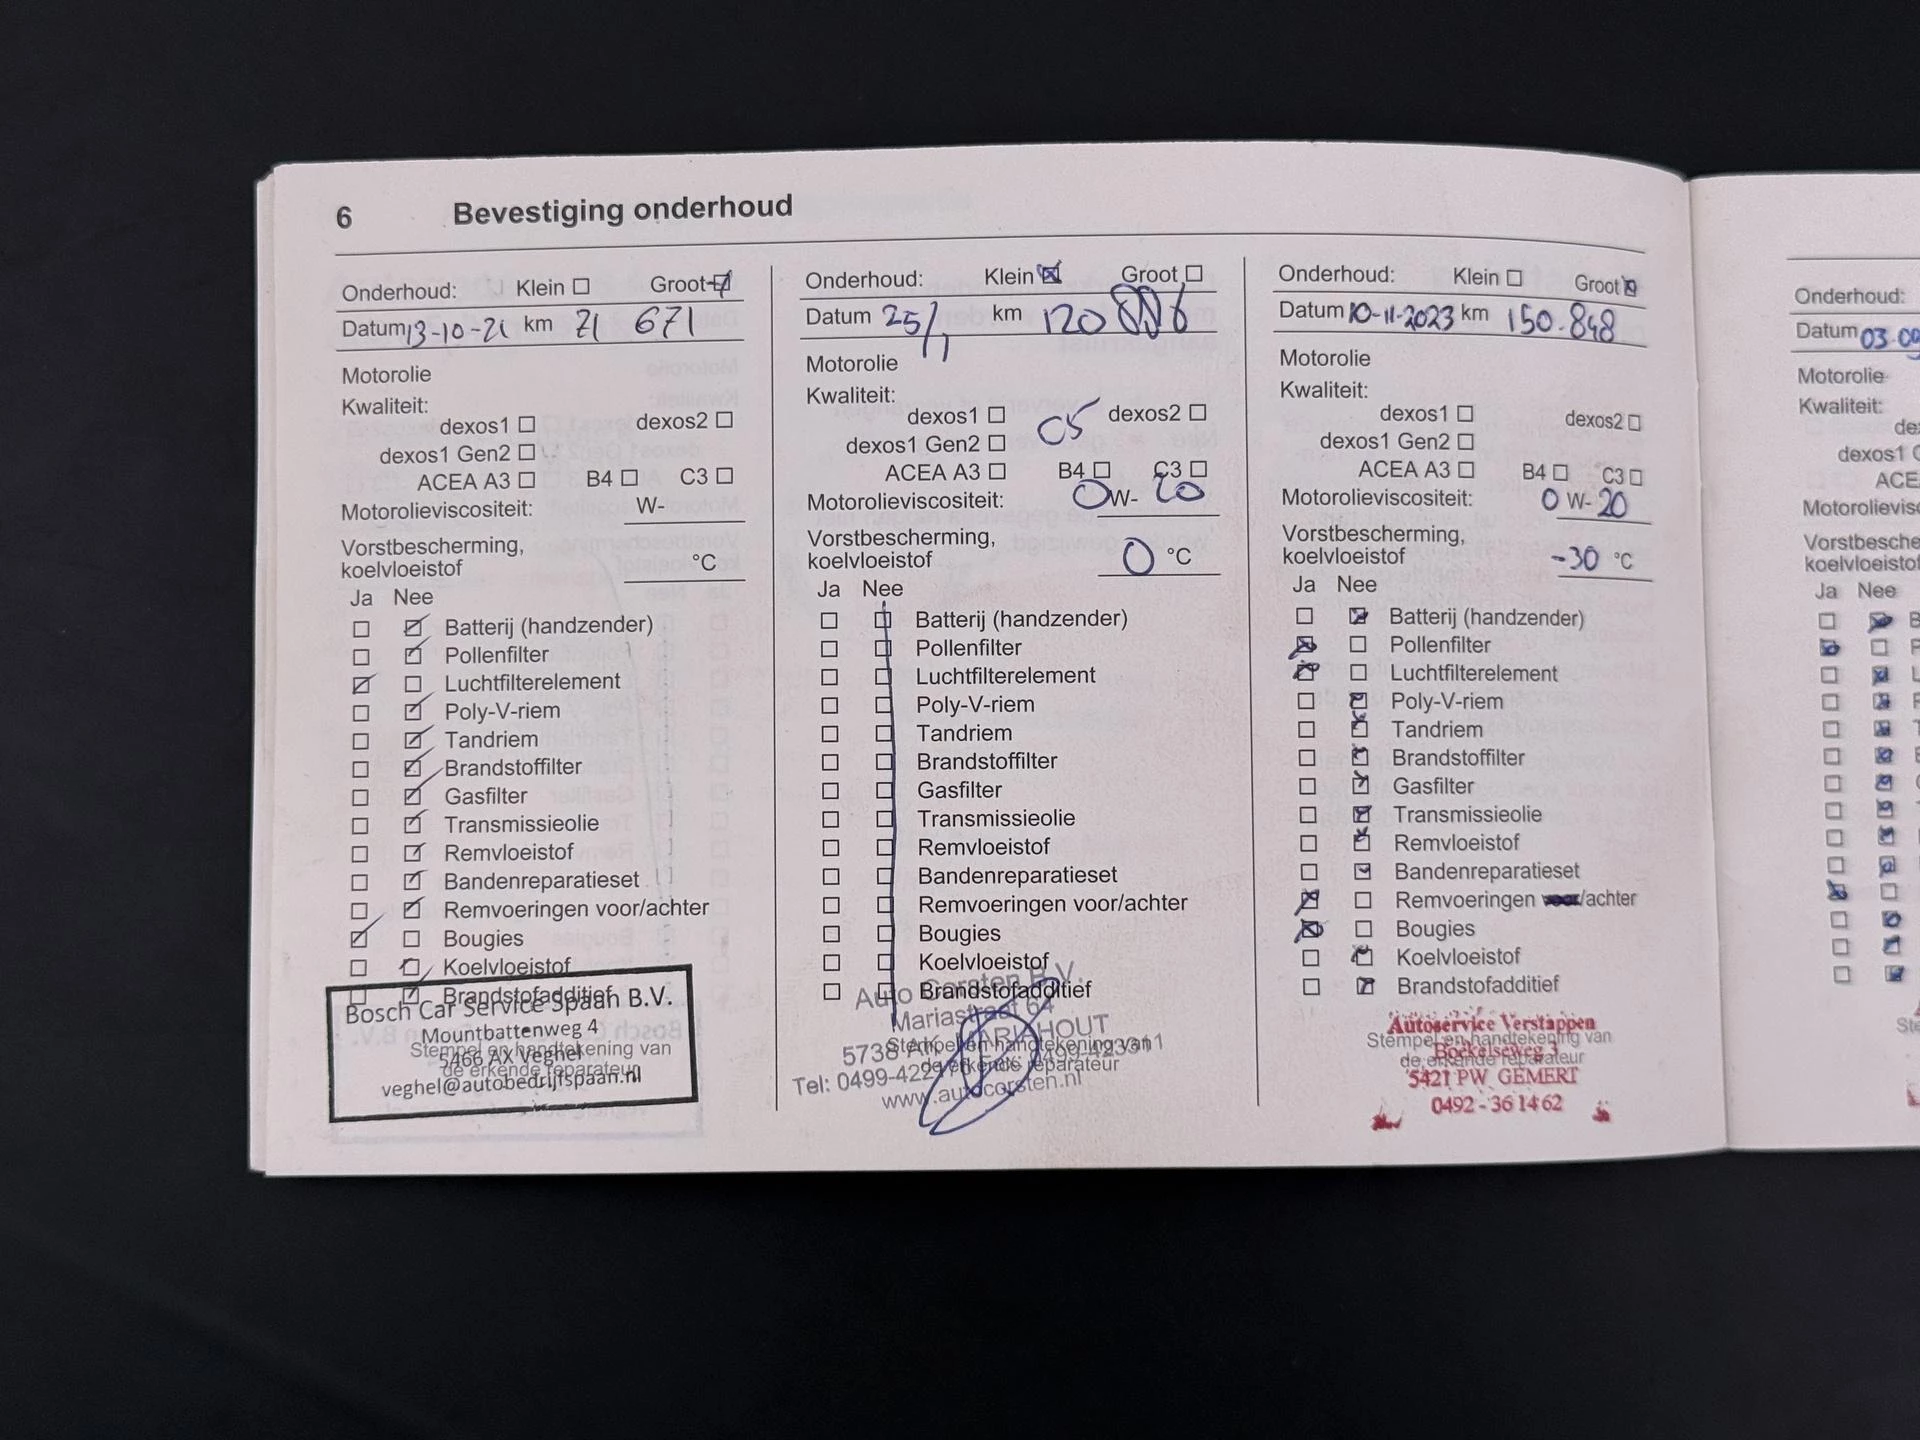 6 Bevestiging onderhoud
Onderhoud: Klein Groot
Datum 13-10-21 km 71 671
Motorolie
Kwaliteit:
dexos1 dexos2
dexos1 Gen2
ACEA A3 B4 C3
Motorolieviscositeit: W-
Vorstbescherming,
koelvloeistof °C
Ja Nee
Batterij (handzender)
Pollenfilter
Luchtfilterelement
Poly-V-riem
Tandriem
Brandstoffilter
Gasfilter
Transmissieolie
Remvloeistof
Bandenreparatieset
Remvoeringen voor/achter
Bougies
Koelvloeistof
Brandstofadditief
Bosch Car Service Spaan B.V.
Mountbattenweg 4
Stempel en handtekening van
5466 AX Veghel
de erkende reparateur
veghel@autobedrijfspaan.nl
Onderhoud: Klein Groot
Datum 25/1 km 120
Motorolie
Kwaliteit:
dexos1 C5 dexos2
dexos1 Gen2
ACEA A3 B4 C3
Motorolieviscositeit: 0 W- 20
Vorstbescherming,
koelvloeistof 0 °C
Ja Nee
Batterij (handzender)
Pollenfilter
Luchtfilterelement
Poly-V-riem
Tandriem
Brandstoffilter
Gasfilter
Transmissieolie
Remvloeistof
Bandenreparatieset
Remvoeringen voor/achter
Bougies
Koelvloeistof
Brandstofadditief
Auto Corsten B.V.
Mariastraat 64
5738 AK MARIAHOUT
Stempel en handtekening van
de erkende reparateur
Tel: 0499-422176 Fax: 0499-423311
www.autocorsten.nl
Onderhoud: Klein Groot
Datum 10-11-2023 km 150.848
Motorolie
Kwaliteit:
dexos1 dexos2
dexos1 Gen2
ACEA A3 B4 C3
Motorolieviscositeit: 0 W- 20
Vorstbescherming,
koelvloeistof -30 °C
Ja Nee
Batterij (handzender)
Pollenfilter
Luchtfilterelement
Poly-V-riem
Tandriem
Brandstoffilter
Gasfilter
Transmissieolie
Remvloeistof
Bandenreparatieset
Remvoeringen voor/achter
Bougies
Koelvloeistof
Brandstofadditief
Autoservice Verstappen
Stempel en handtekening van
Boekelseweg
de erkende reparateur
5421 PW GEMERT
0492 - 36 14 62
Onderhoud:
Datum 03-09
Motorolie
Kwaliteit:
dexos1
ACE
Motorolievisc
Vorstbesche
koelvloeistof
Ja Nee